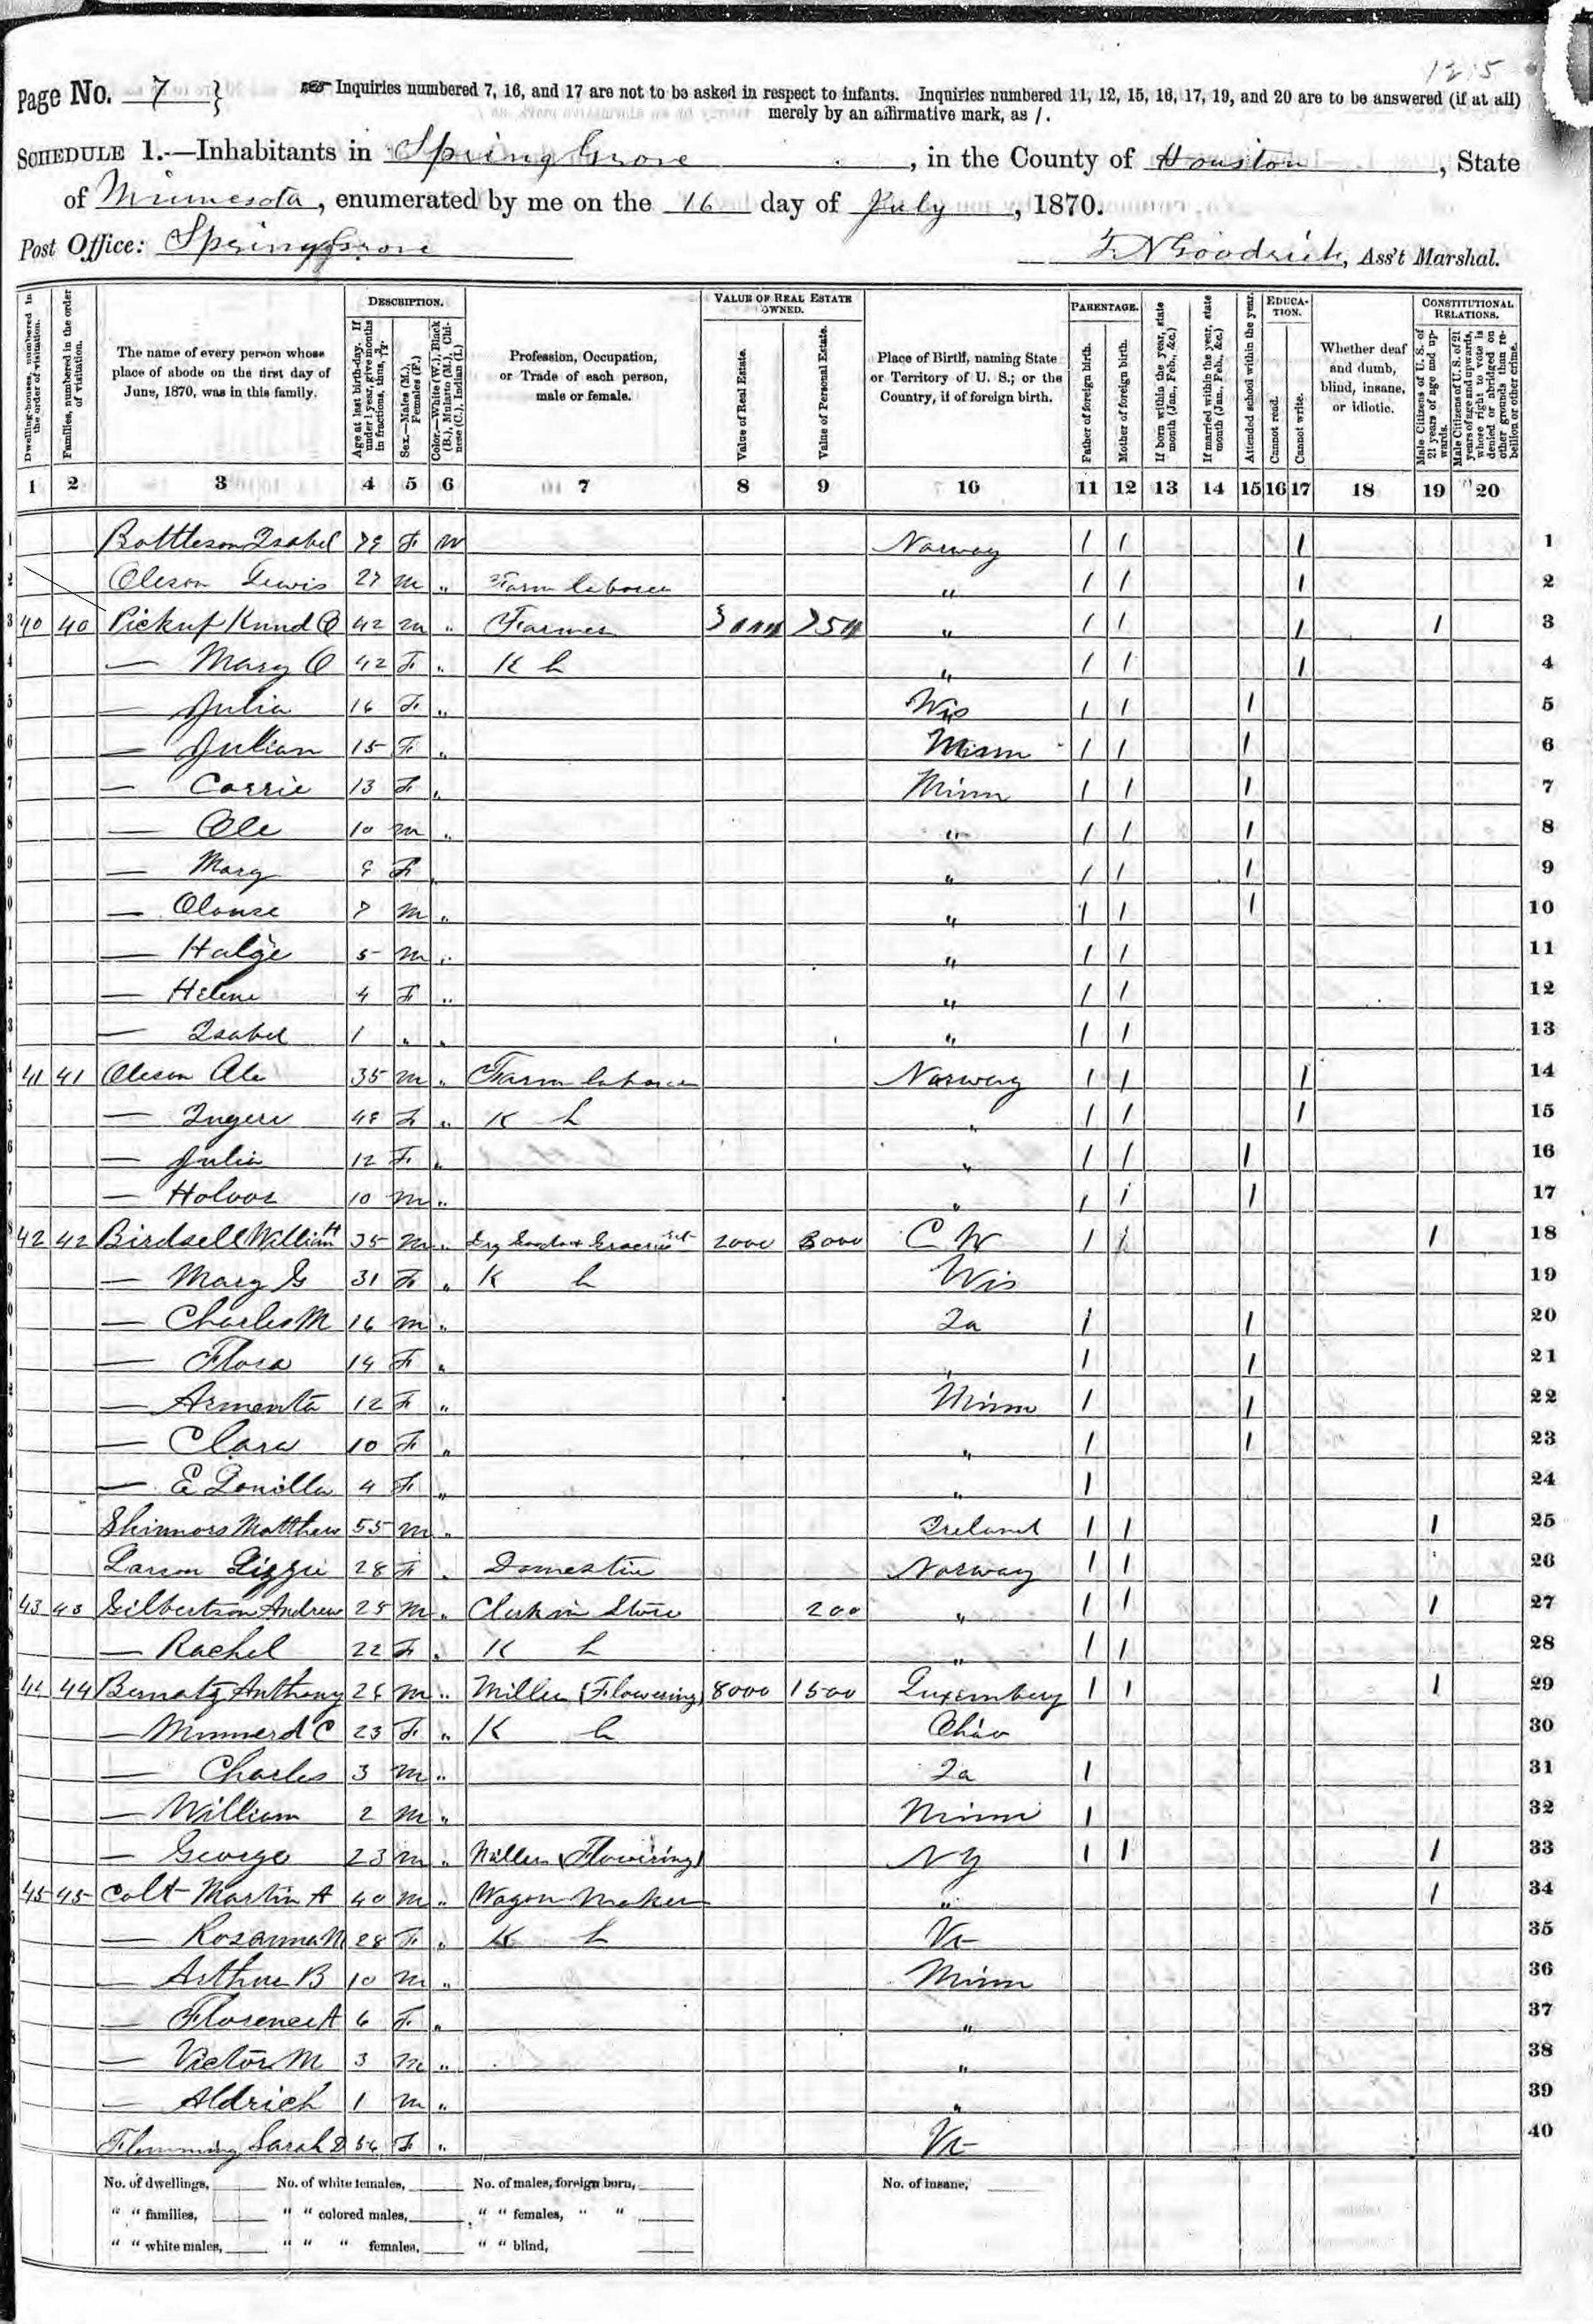 1215
Page No. 7 } Inquiries numbered 7, 16, and 17 are not to be asked in respect to infants. Inquiries numbered 11, 12, 15, 16, 17, 19, and 20 are to be answered (if at all)
merely by an affirmative mark, as /.
SCHEDULE 1.—Inhabitants in Spring Grove, in the County of Houston, State
of Minnesota, enumerated by me on the 16 day of July, 1870.
Post Office: Spring Grove
F N Goodrich, Ass't Marshal.
Dwelling-houses, numbered in the order of visitation.
Families, numbered in the order of visitation.
The name of every person whose place of abode on the first day of June, 1870, was in this family.
DESCRIPTION.
Age at last birth-day. If under 1 year, give months in fractions, thus,
Sex.—Males (M.), Females (F.)
Color.—White (W.), Black (B.), Mulatto (M.), Chinese (C.), Indian (I.)
Profession, Occupation, or Trade of each person, male or female.
VALUE OF REAL ESTATE OWNED.
Value of Real Estate.
Value of Personal Estate.
Place of Birth, naming State or Territory of U. S.; or the Country, if of foreign birth.
PARENTAGE.
Father of foreign birth.
Mother of foreign birth.
If born within the year, state month (Jan., Feb., &c.)
If married within the year, state month (Jan., Feb., &c.)
Attended school within the year.
EDUCATION.
Cannot read.
Cannot write.
Whether deaf and dumb, blind, insane, or idiotic.
CONSTITUTIONAL RELATIONS.
Male Citizens of U. S. of 21 years of age and upwards.
Male Citizens of U. S. of 21 years of age and upwards, whose right to vote is denied or abridged on other grounds than rebellion or other crime.
1 2 3 4 5 6 7 8 9 10 11 12 13 14 15 16 17 18 19 20
1 Isabel F W Norway / / / 1
Oleson Lewis 27 M " Farm laborer " / / / 2
3 40 40 Pickup Knud O 42 M " Farmer " / / / / 3
— Mary O 42 F " K h " / / / 4
— Julia 16 F " Wis / / / 5
— Julian 15 F " Minn / / / 6
— Carrie 13 F " Minn / / / 7
— Ole 10 M " " / / / 8
— Mary 9 F " " / / / 9
— 7 M " " / / / 10
— Halge 5 M " " / / 11
— Helene 4 F " " / / 12
— Isabel 1 " " " / / 13
41 41 Oleson Ole 35 M " Farm laborer Norway / / / 14
— Ingere F " K h " / / / 15
— Julia 12 F " " / / / 16
— 10 M " " / / / 17
42 42 Birdsell William H 35 M " Dry Goods & Groceries 2000 3000 C W / / / 18
— Mary G 31 F " K h Wis 19
— Charles M 16 M " Ia / / 20
— Flora 14 F " " / / 21
— Armenta 12 F " Minn / / 22
— Clara 10 F " " / / 23
— E 4 F " " / 24
Matthew 55 M " Ireland / / / 25
Larson Lizzie 28 F " Domestic Norway / / 26
43 43 Gilbertson Andrew M " Clerk in Store 200 " / / / 27
— Rachel 22 F " K h " / / 28
44 44 Bernatz Anthony 26 M " Miller (Flowering) 8000 1500 Luxemberg / / / 29
— C 23 F " K h Ohio 30
— Charles 3 M " Ia / 31
— William 2 M " Minn / 32
— George 23 M " Miller (Flowering) N Y / / / 33
45 45 Colt Martin A 40 M " Wagon Maker " / 34
— Rosanna N 28 F " K h Va 35
— Arthur B 10 M " Minn 36
— Florence A 6 F " " 37
— Victor M 3 M " " 38
— Aldrich 1 M " " 39
Flemming Sarah D 56 F " Va 40
No. of dwellings, No. of white females, No. of males, foreign born, No. of insane,
" " families, " " colored males, " " females, " "
" " white males, " " " females, " " blind,